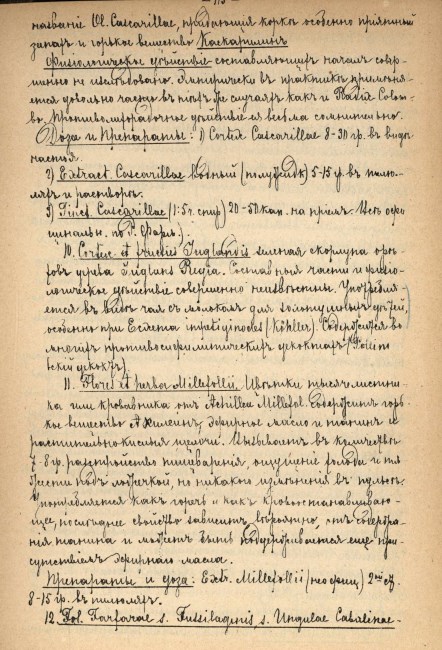 названіе Ol. Cascarillae, придающая коркѣ особенно пріятный
запахъ и горькое вещество Каскариллинъ
Физіологическое дѣйствіе составляющихъ началъ совер-
шенно не изслѣдовано. Эмпирически въ практикѣ примѣня-
ется довольно часто въ тѣхъ же случаяхъ какъ и Radix Colom-
bo. Противолихорадочное дѣйствіе ея весьма сомнительно.
Доза и Препараты: 1) Cortex Cascarillae 8-30 гр. въ видѣ
настоя.
2) Extract. Cascarillae водный (полужидк) 5-15 гр. въ пилю-
ляхъ и растворѣ.
3) Tinct. Cascarillae (1:5 г. спир) 20-50 кап. на пріемъ. Цвѣ офи-
цинальн. по Р. Фарм.).
10. Cortex et fructus Juglandis зеленая скорлупа орѣ-
ховъ дерева Juglans Regia. Составныя части и физіо-
логическое дѣйствіе совершенно неизвѣстны. Употребля-
ется въ видѣ чая съ молокомъ для золотушныхъ дѣтей,
особенно при Eczema impetiginodes (Köhler). Содержится во
многихъ противосифилитическихъ декоктахъ (Pollini
декоктъ)
11. Flores et herba Millefolii. Цвѣтки тысячелистни-
ка или кровавника отъ Achillea Millefol. содержитъ горь-
кое вещество Ахиллеинъ, эфирное масло и танинъ и
растительнокислыя щелочи. Вызываетъ въ количествѣ
7-8 гр. разстройство пищеваренія, ощущеніе голода и тя
жести подъ ложечкой, но никакого измѣненія въ пульсѣ.
Употребляется какъ горечь и какъ кровоостанавливаю-
щее, послѣднее свойство зависитъ вѣроятно отъ содержа-
нія танина и можетъ быть поддерживается еще при-
сутствіемъ эфирнаго масла.
Препараты и доза: Extr. Millefolii (не офиц)
8-15 гр. въ пилюляхъ.
12. Fol. Farfarae s. Tussilaginis, s. Ungulae Caballinae-